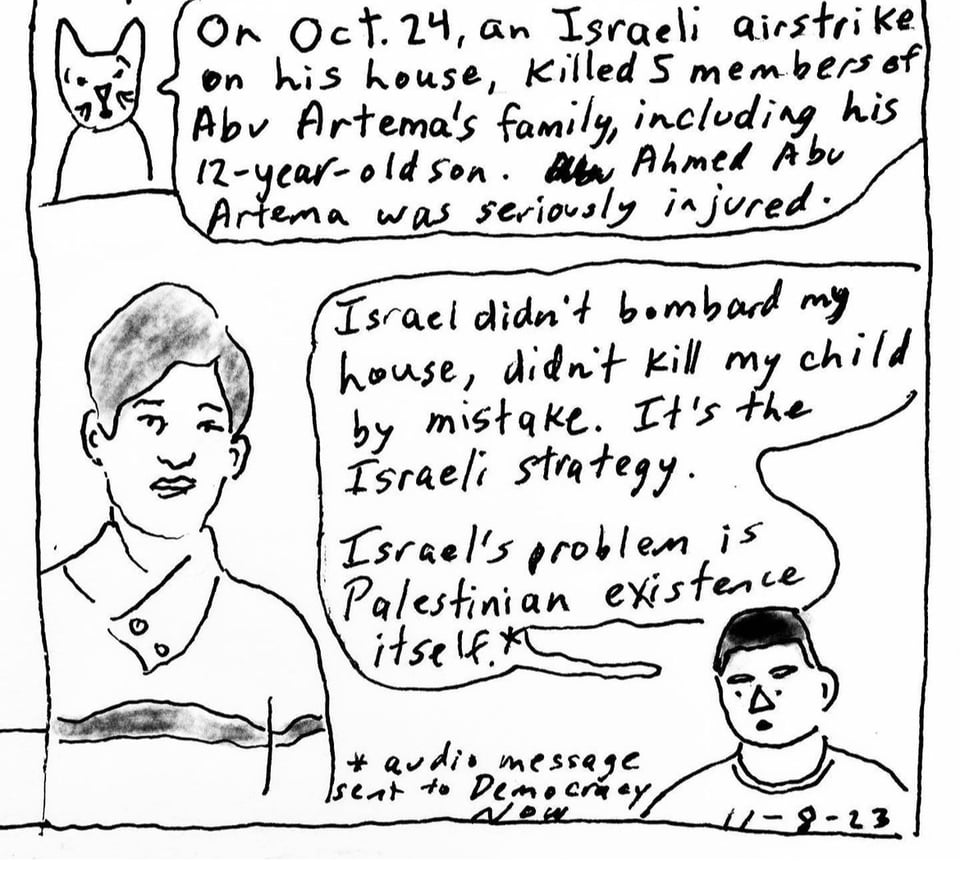 On Oct. 24, an Israeli airstrike
on his house, killed 5 members of
Abu Artema's family, including his
12-year-old son. Ahmed Abu
Artema was seriously injured.
Israel didn't bombard my
house, didn't kill my child
by mistake. It's the
Israeli strategy.
Israel's problem is
Palestinian existence
itself.*
* audio message
sent to Democracy
Now
11-8-23